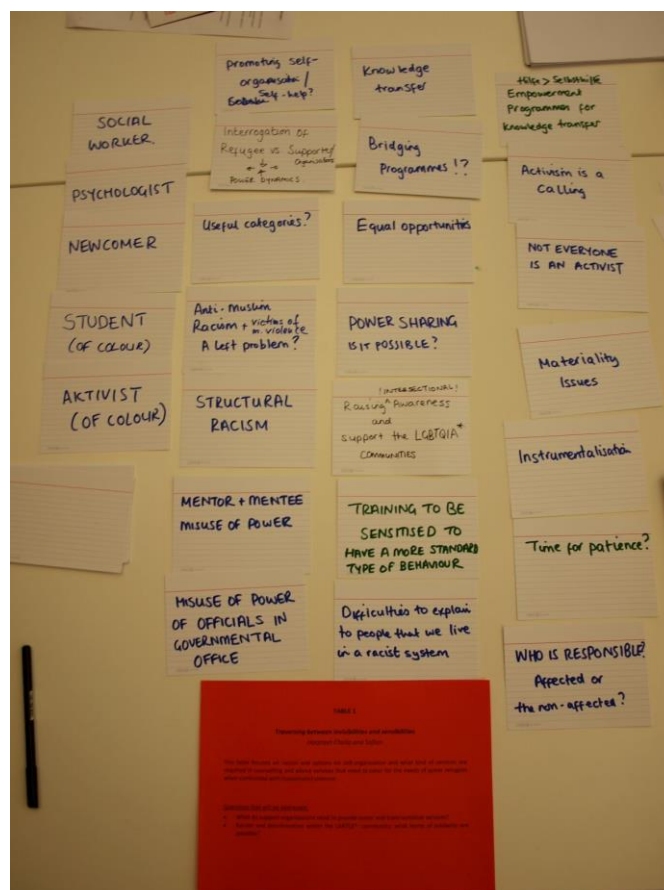 SOCIAL
WORKER.
PSYCHOLOGIST
NEWCOMER
STUDENT
(OF COLOUR)
AKTIVIST
(OF COLOUR)
promoting self-
organisation/
Self-help?
Interrogation of
Refugee vs Supporter/
Organisations
POWER DYNAMICS
Useful categories?
Anti-Muslim
Racism + victims of
m. violence
A left problem?
STRUCTURAL
RACISM
MENTOR + MENTEE
MISUSE OF POWER
MISUSE OF POWER
OF OFFICIALS IN
GOVERNMENTAL
OFFICE
Knowledge
transfer
Bridging
Programmes !?
Equal opportunities
POWER SHARING
IS IT POSSIBLE?
! INTERSECTIONAL !
Raising ^ Awareness
and
support the LGBTQIA*
COMMUNITIES
TRAINING TO BE
SENSITISED TO
HAVE A MORE STANDARD
TYPE OF BEHAVIOUR
Difficulties to explain
to people that we live
in a racist system
Hilfe > Selbsthilfe
Empowerment
Programmes for
Knowledge transfer
Activism is a
Calling
NOT EVERYONE
IS AN ACTIVIST
Materiality
Issues
Instrumentalisation
Time for patience?
WHO IS RESPONSIBLE?
Affected or
the non-affected?
TABLE 1